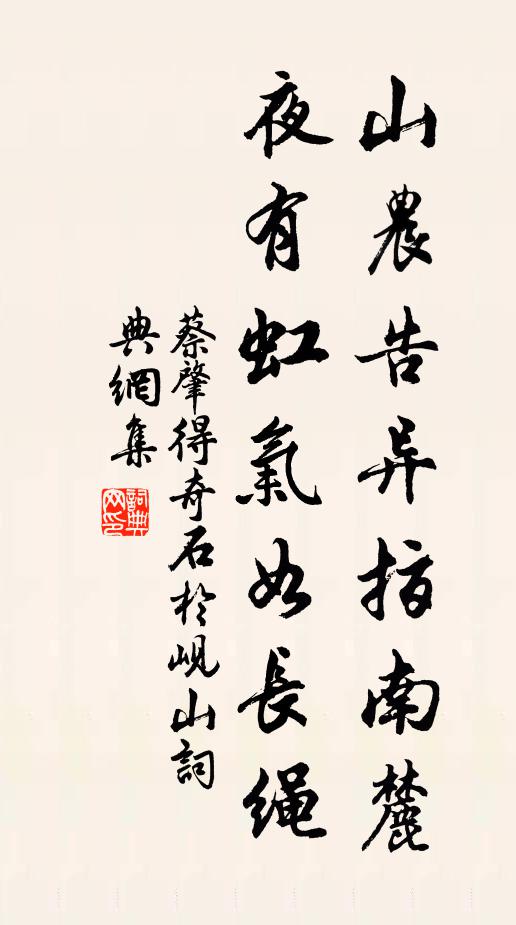 山農告异指南麓
夜有虹氣如長繩
蔡肇得奇石於峴山詞
典網集
詞典
网印